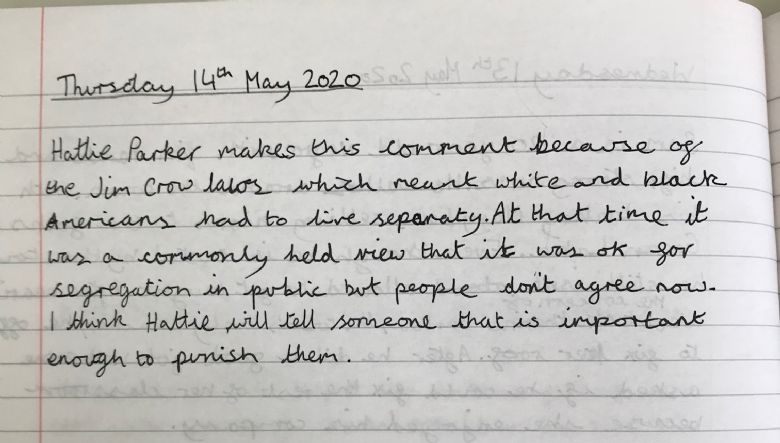 Thursday 14th May 2020
Hattie Parker makes this comment because of
the Jim Crow laws which meant white and black
Americans had to live separaty. At that time it
was a commonly held view that it was ok for
segregation in public but people don't agree now.
I think Hattie will tell someone that is important
enough to punish them.